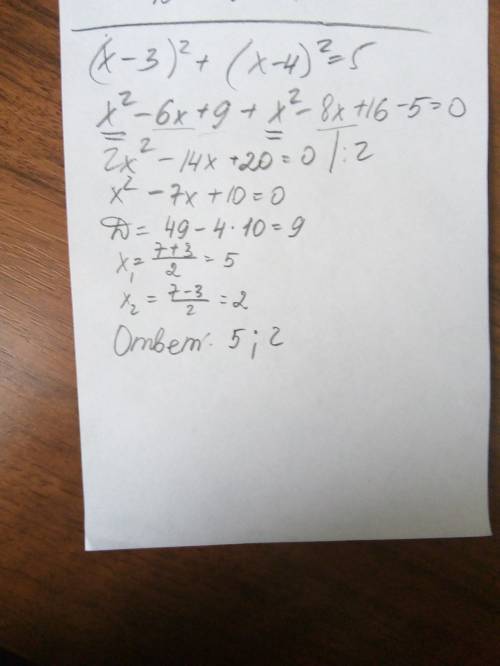 (x-3)²+(x-4)²=5
x²-6x+9+x²-8x+16-5=0
2x²-14x+20=0 |:2
x²-7x+10=0
D=49-4·10=9
x₁=(7+3)/2=5
x₂=(7-3)/2=2
Ответ: 5;2